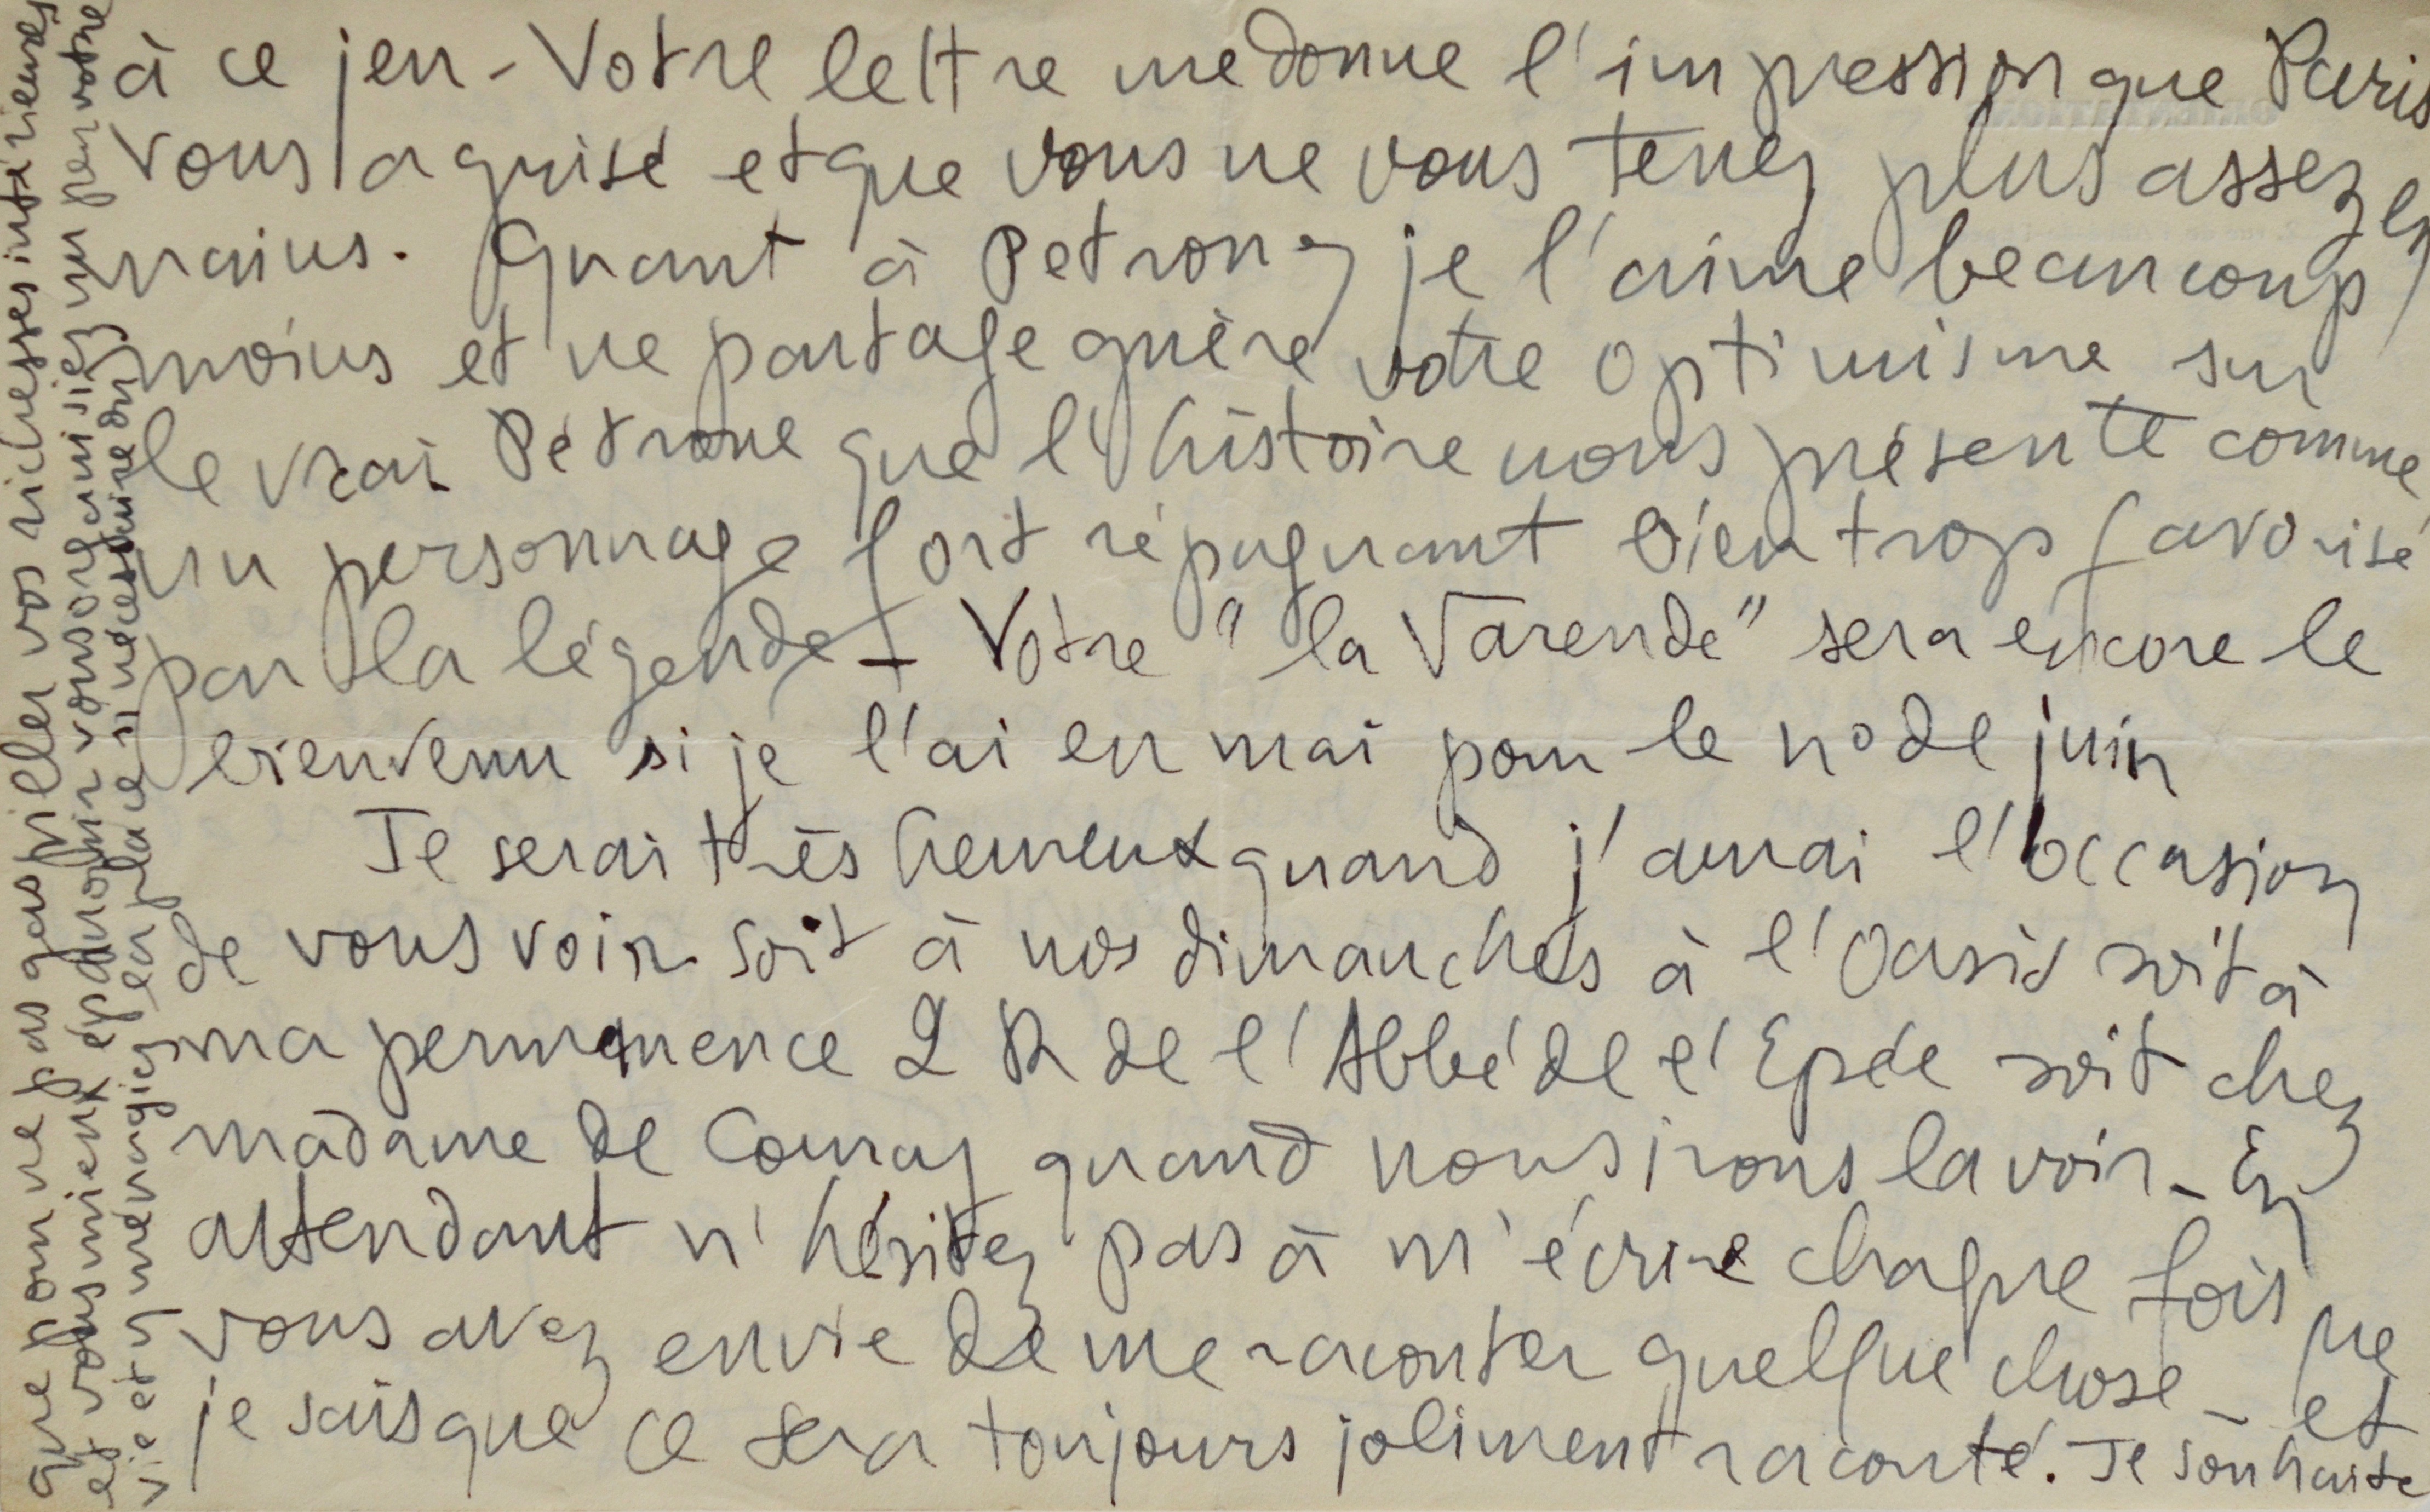 à ce jeu - Votre lettre me donne l'impression que Paris
vous a grisé et que vous ne vous tenez plus assez en
mains. Quant à Petrone, je l'aime beaucoup
moins et ne partage guère votre optimisme sur
le vrai Pétrone que l'histoire nous présente comme
un personnage fort répugnant bien trop favorisé
par la légende - Votre "la Varende" sera encore le
bienvenu si je l'ai en mai pour le no de juin
Je serai très heureux quand j'aurai l'occasion
de vous voir soit à nos dimanches à l'Oasis soit à
ma permanence 2 R de l'Abbé de l'Epée soit chez
madame de Couray quand nous irons la voir - En
attendant n'hésitez pas à m'écrire chaque fois que
vous avez envie de me raconter quelque chose - et
je sais que ce sera toujours joliment raconté. Je souhaite
que pour ne pas gaspiller vos richesses intérieures
et vous mieux épanouir vous organisiez un peu votre
vie et y ménagiez en place si nécessaire du